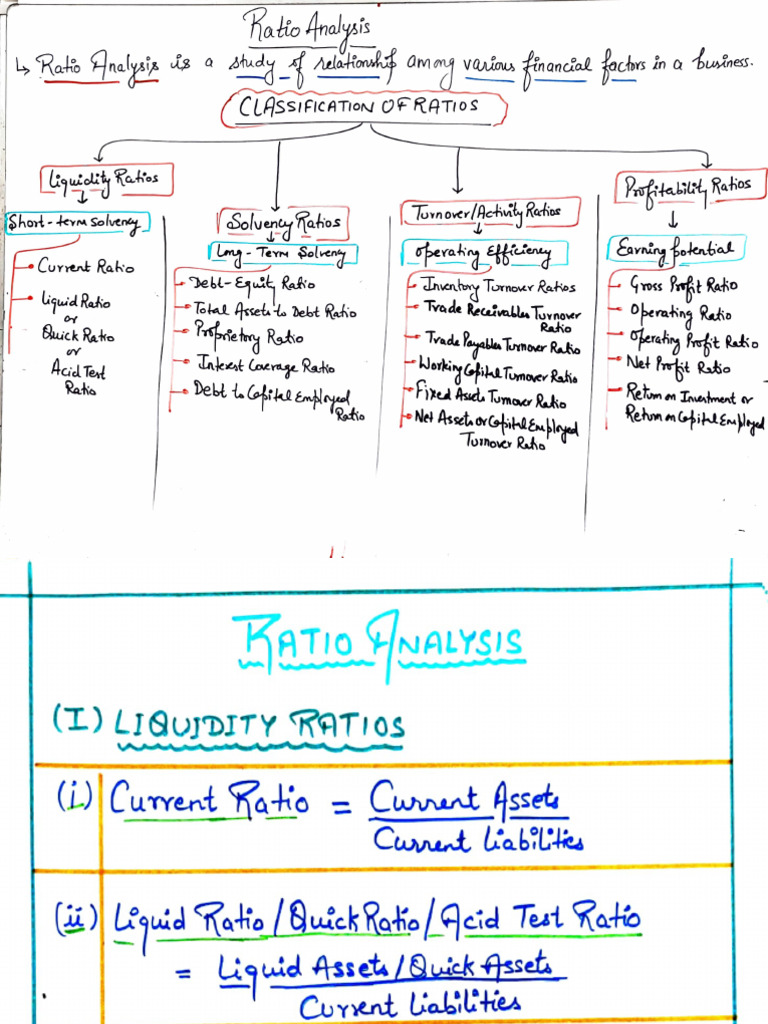 Ratio Analysis
↳ Ratio Analysis is a study of relationship among various financial factors in a business.
CLASSIFICATION OF RATIOS
Liquidity Ratios
Short-term solvency
Current Ratio
Liquid Ratio
or
Quick Ratio
or
Acid Test
Ratio
Solvency Ratios
Long-Term Solvency
Debt-Equity Ratio
Total Assets to Debt Ratio
Proprietory Ratio
Interest Coverage Ratio
Debt to Capital Employed
Ratio
Turnover/Activity Ratios
Operating Efficiency
Inventory Turnover Ratios
Trade Receivables Turnover
Ratio
Trade Payables Turnover Ratio
Working Capital Turnover Ratio
Fixed Assets Turnover Ratio
Net Assets or Capital Employed
Turnover Ratio
Profitability Ratios
Earning potential
Gross Profit Ratio
Operating Ratio
Operating Profit Ratio
Net Profit Ratio
Return on Investment or
Return on Capital Employed
RATIO ANALYSIS
(I) LIQUIDITY RATIOS
(i) Current Ratio = Current Assets
Current Liabilities
(ii) Liquid Ratio/Quick Ratio/Acid Test Ratio
= Liquid Assets/Quick Assets
Current Liabilities